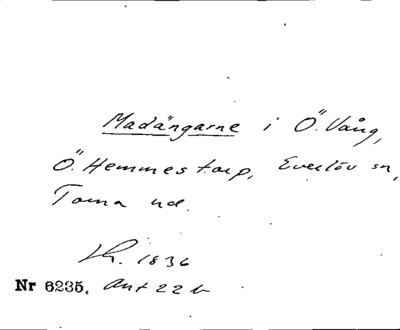 Madängarne i Ö. Vång,
Ö. Hemmestorp, Everlöv sn,
Torna hd.
Lk. 1836
Nr 6235. Akt 22 b